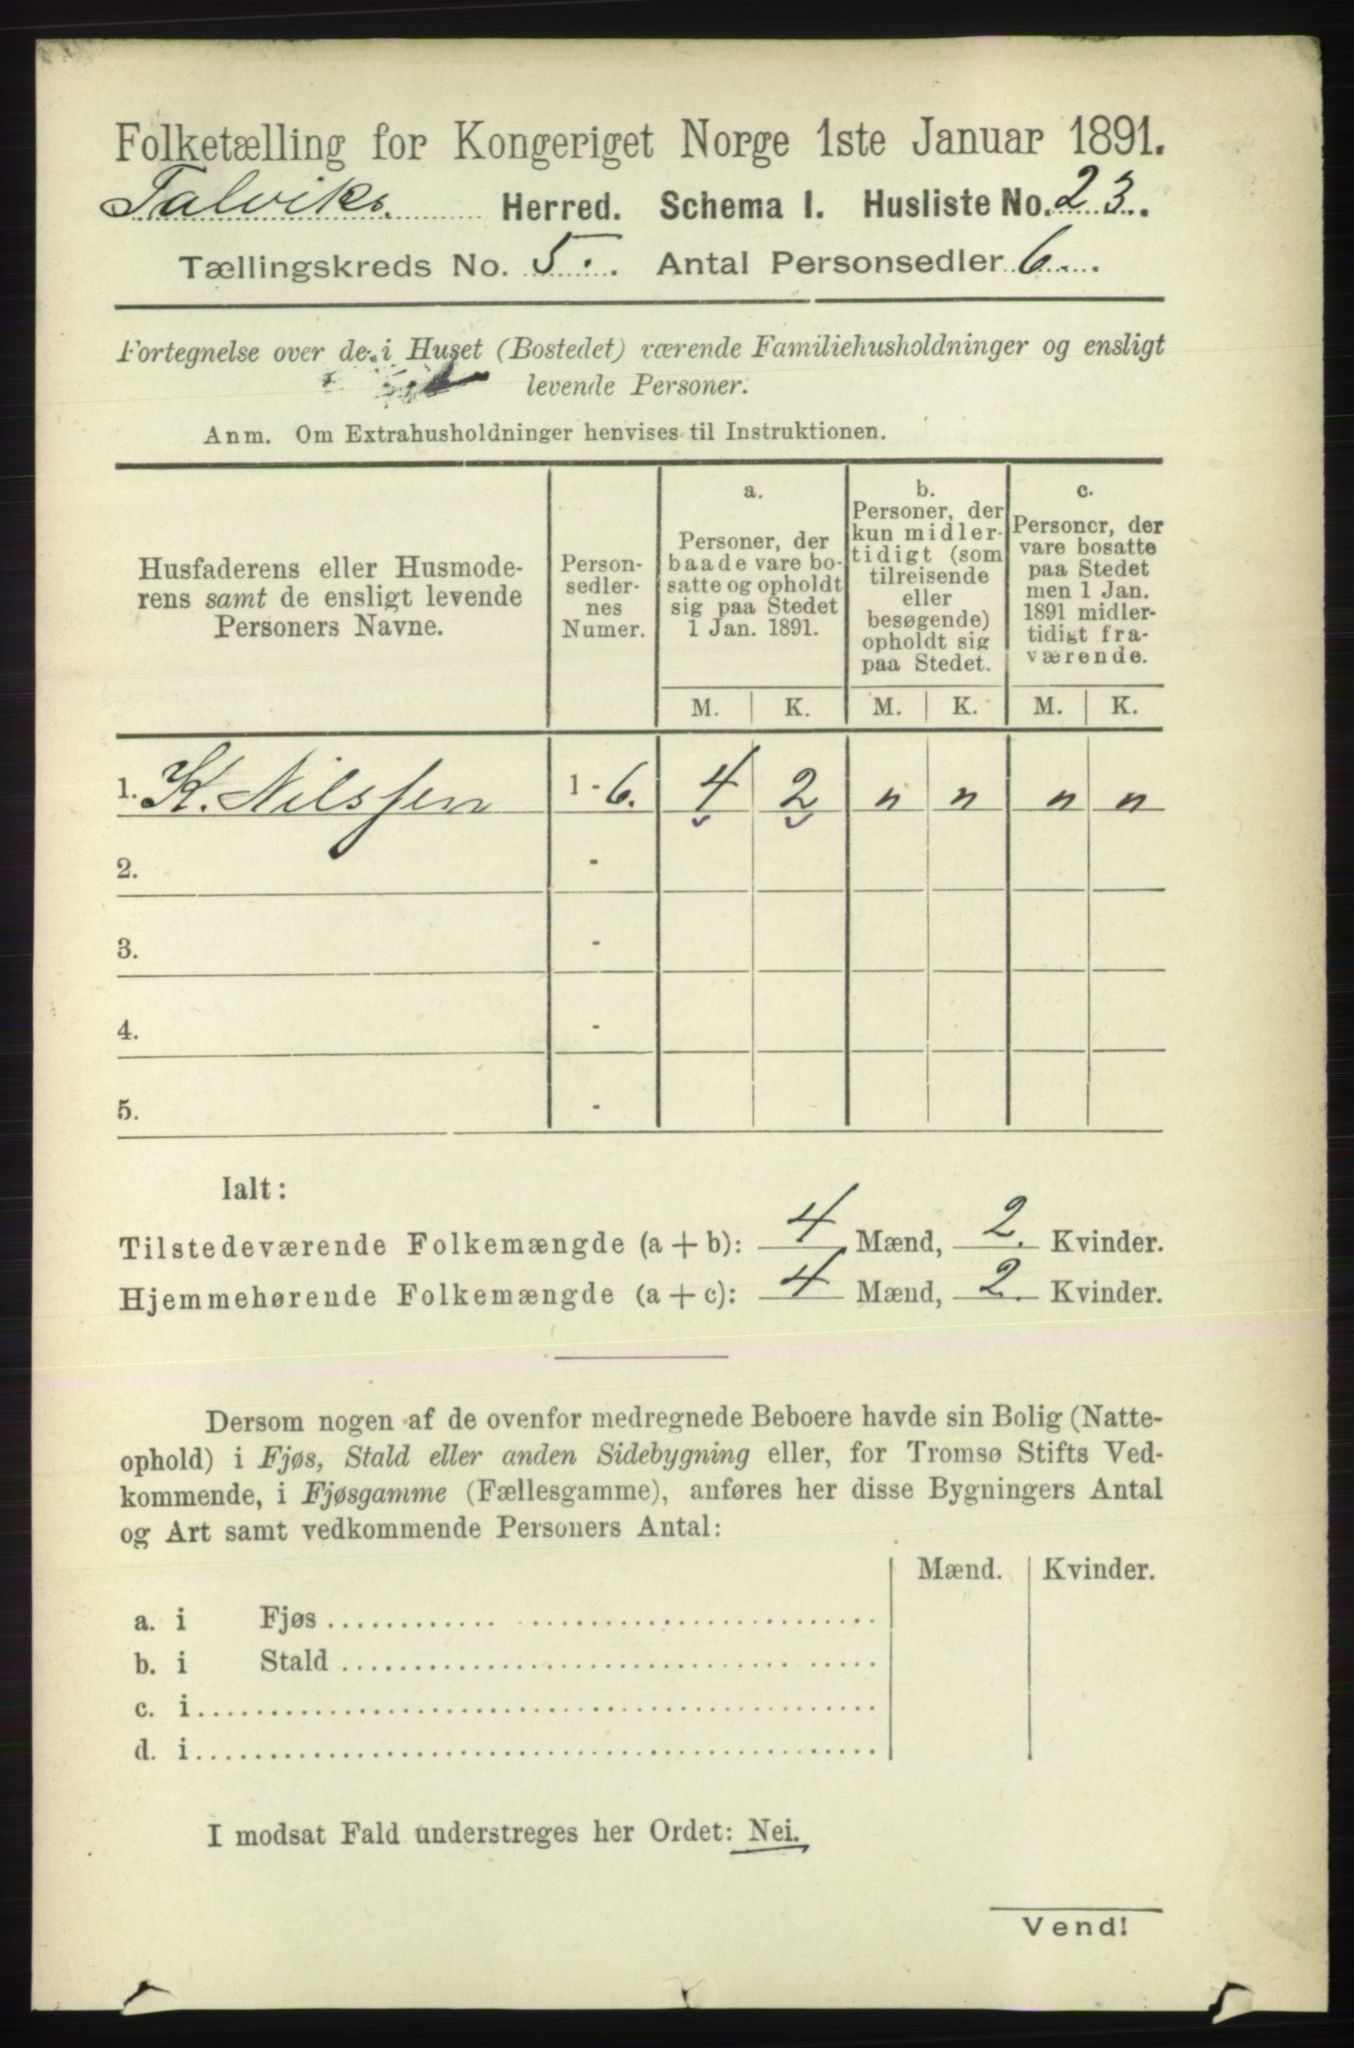 Folketælling for Kongeriget Norge 1ste Januar 1891.
Talviks Herred. Schema I. Husliste No. 23.
Tællingskreds No. 5. Antal Personsedler 6.
Fortegnelse over de i Huset (Bostedet) værende Familiehusholdninger og ensligt
levende Personer.
Anm. Om Extrahusholdninger henvises til Instruktionen.
Husfaderens eller Husmode-
rens samt de ensligt levende
Personers Navne.
Person-
sedler-
nes
Numer.
a.
Personer, der
baade vare bo-
satte og opholdt
sig paa Stedet
1 Jan. 1891.
b.
Personer, der
kun midler-
tidigt (som
tilreisende
eller
besøgende)
opholdt sig
paa Stedet.
c.
Personer, der
vare bosatte
paa Stedet
men 1 Jan.
1891 midler-
tidigt fra-
værende.
M. K. M. K. M. K.
1. K. Nilssen 1 - 6. 4 2 " " " "
2. -
3. -
4. -
5. -
Ialt:
Tilstedeværende Folkemængde (a + b): 4 Mænd, 2. Kvinder.
Hjemmehørende Folkemængde (a + c): 4 Mænd, 2. Kvinder.
Dersom nogen af de ovenfor medregnede Beboere havde sin Bolig (Natte-
ophold) i Fjøs, Stald eller anden Sidebygning eller, for Tromsø Stifts Ved-
kommende, i Fjøsgamme (Fællesgamme), anføres her disse Bygningers Antal
og Art samt vedkommende Personers Antal:
Mænd. Kvinder.
a. i Fjøs
b. i Stald
c. i
d. i
I modsat Fald understreges her Ordet: Nei.
Vend!